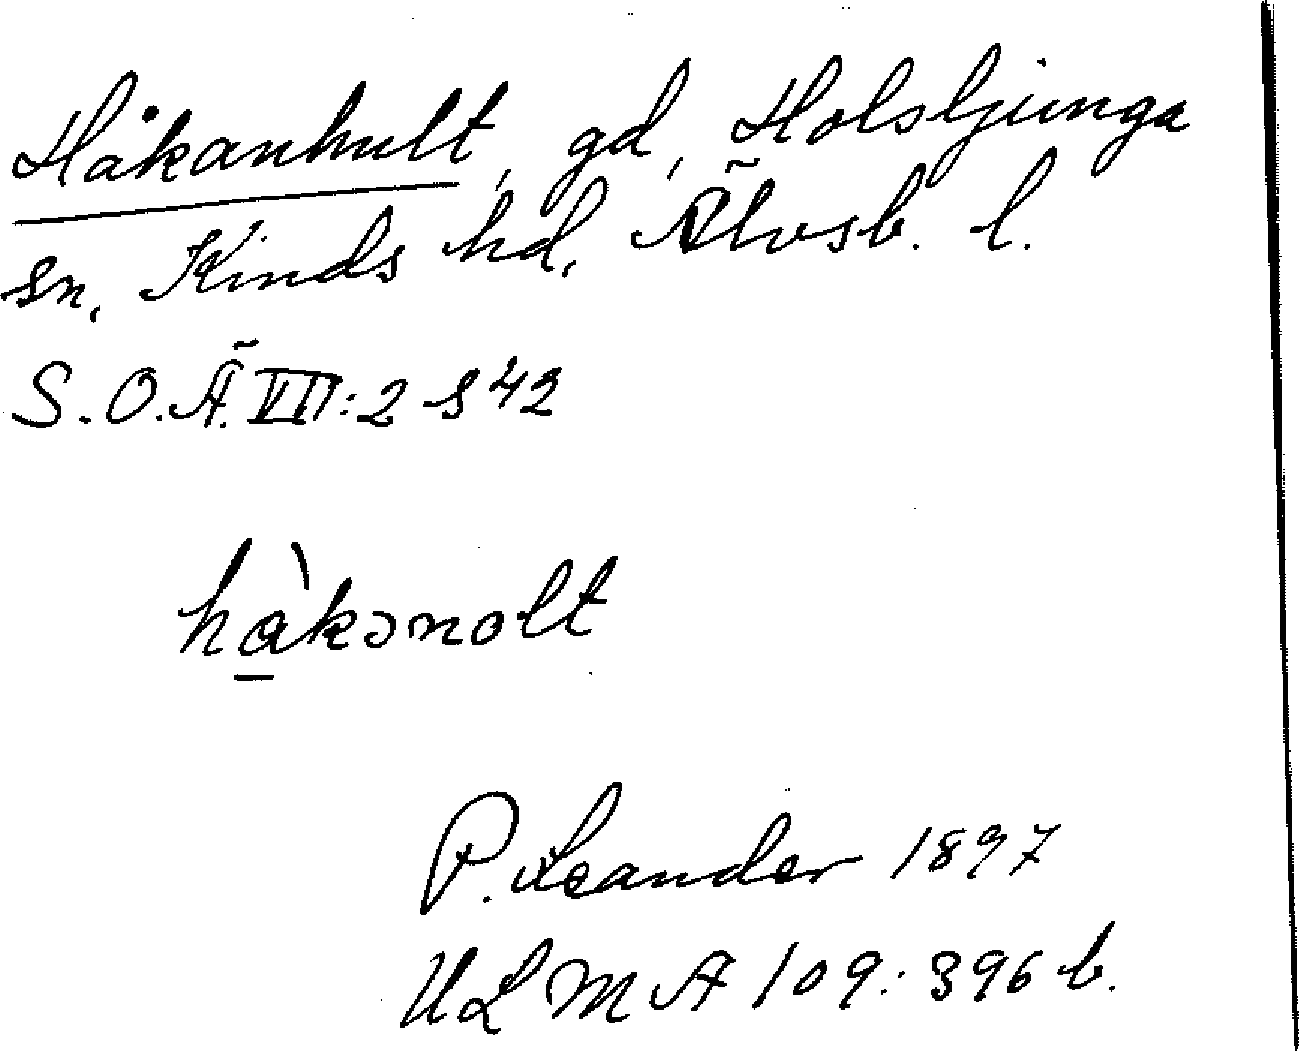 Håkanhult, gd, Holsljunga
sn, Kinds hd, Älvsb. l.
S.O.Ä. VII:2 s 42
håkənolt
P. Leander 1897
ULMA 109:396 b.